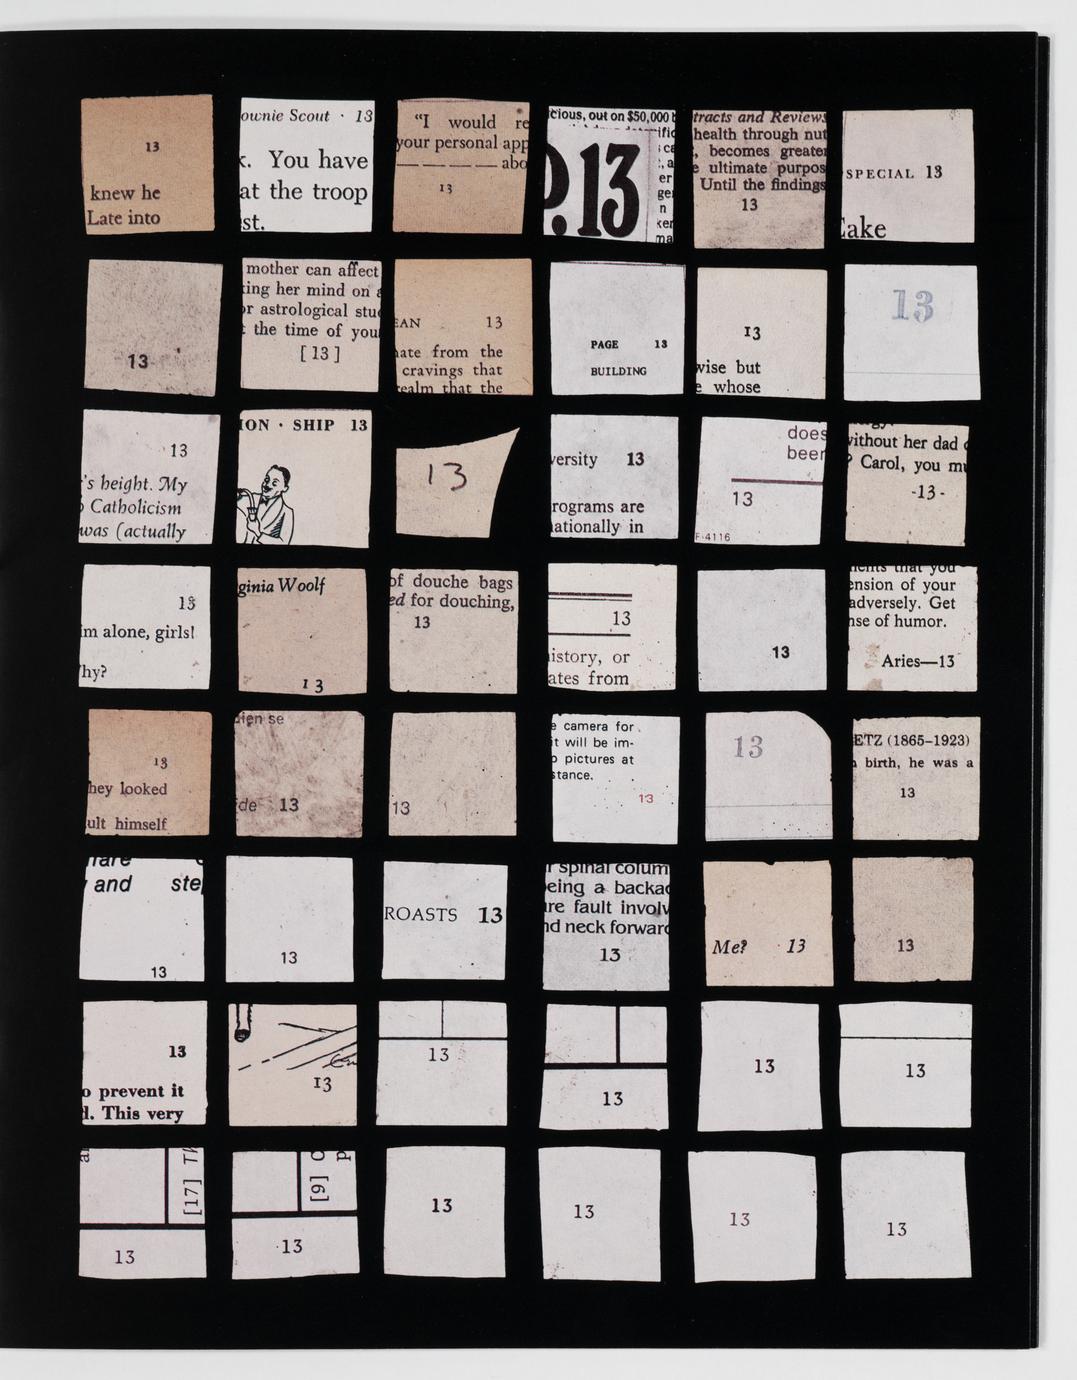 13
knew he
Late into
ownie Scout · 13
k. You have
at the troop
st.
"I would re
your personal app
— — — — abo
13
cious, out on $50,000 b
P.13
tracts and Reviews
health through nut
, becomes greater
e ultimate purpos
Until the findings
13
SPECIAL 13
Cake
13
mother can affect
ing her mind on a
or astrological stu
t the time of you
[ 13 ]
EAN 13
ate from the
cravings that
realm that the
PAGE 13
BUILDING
13
wise but
e whose
13
13
's height. My
Catholicism
was (actually
ION · SHIP 13
13
versity 13
rograms are
nationally in
does
been
13
F-4116
without her dad
? Carol, you mu
-13-
13
im alone, girls!
hy?
ginia Woolf
13
of douche bags
ed for douching,
13
13
istory, or
ates from
13
ments that you
ension of your
adversely. Get
nse of humor.
Aries—13
13
hey looked
ult himself
ien se
de 13
13
e camera for
it will be im-
o pictures at
stance.
13
13
ETZ (1865–1923)
birth, he was a
13
and ste
13
13
ROASTS 13
spinal colum
eing a backac
re fault involv
nd neck forward
13
Me? 13
13
13
o prevent it
d. This very
13
13
13
13
13
[17] Th
13
[9] O
p
13
13
13
13
13